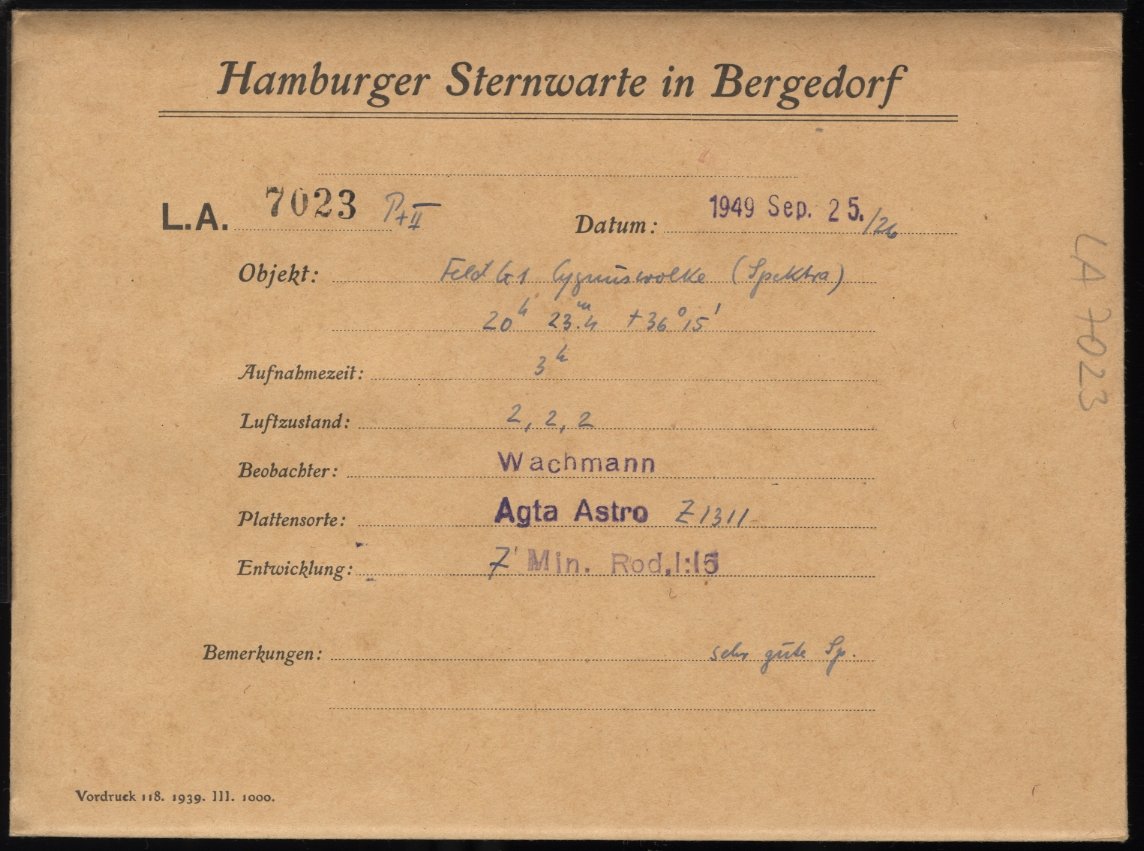 Hamburger Sternwarte in Bergedorf
L.A. 7023 P+II Datum: 1949 Sep. 25./26
Objekt: Feld G1 Cygnuswolke (Spektra)
20h 23m.4 +36° 15'
Aufnahmezeit: 3h
Luftzustand: 2, 2, 2
Beobachter: Wachmann
Plattensorte: Agfa Astro Z1311
Entwicklung: 7' Min. Rod.1:15
Bemerkungen: sehr gute Sp.
Vordruck 118. 1939. III. 1000.
LA 7023